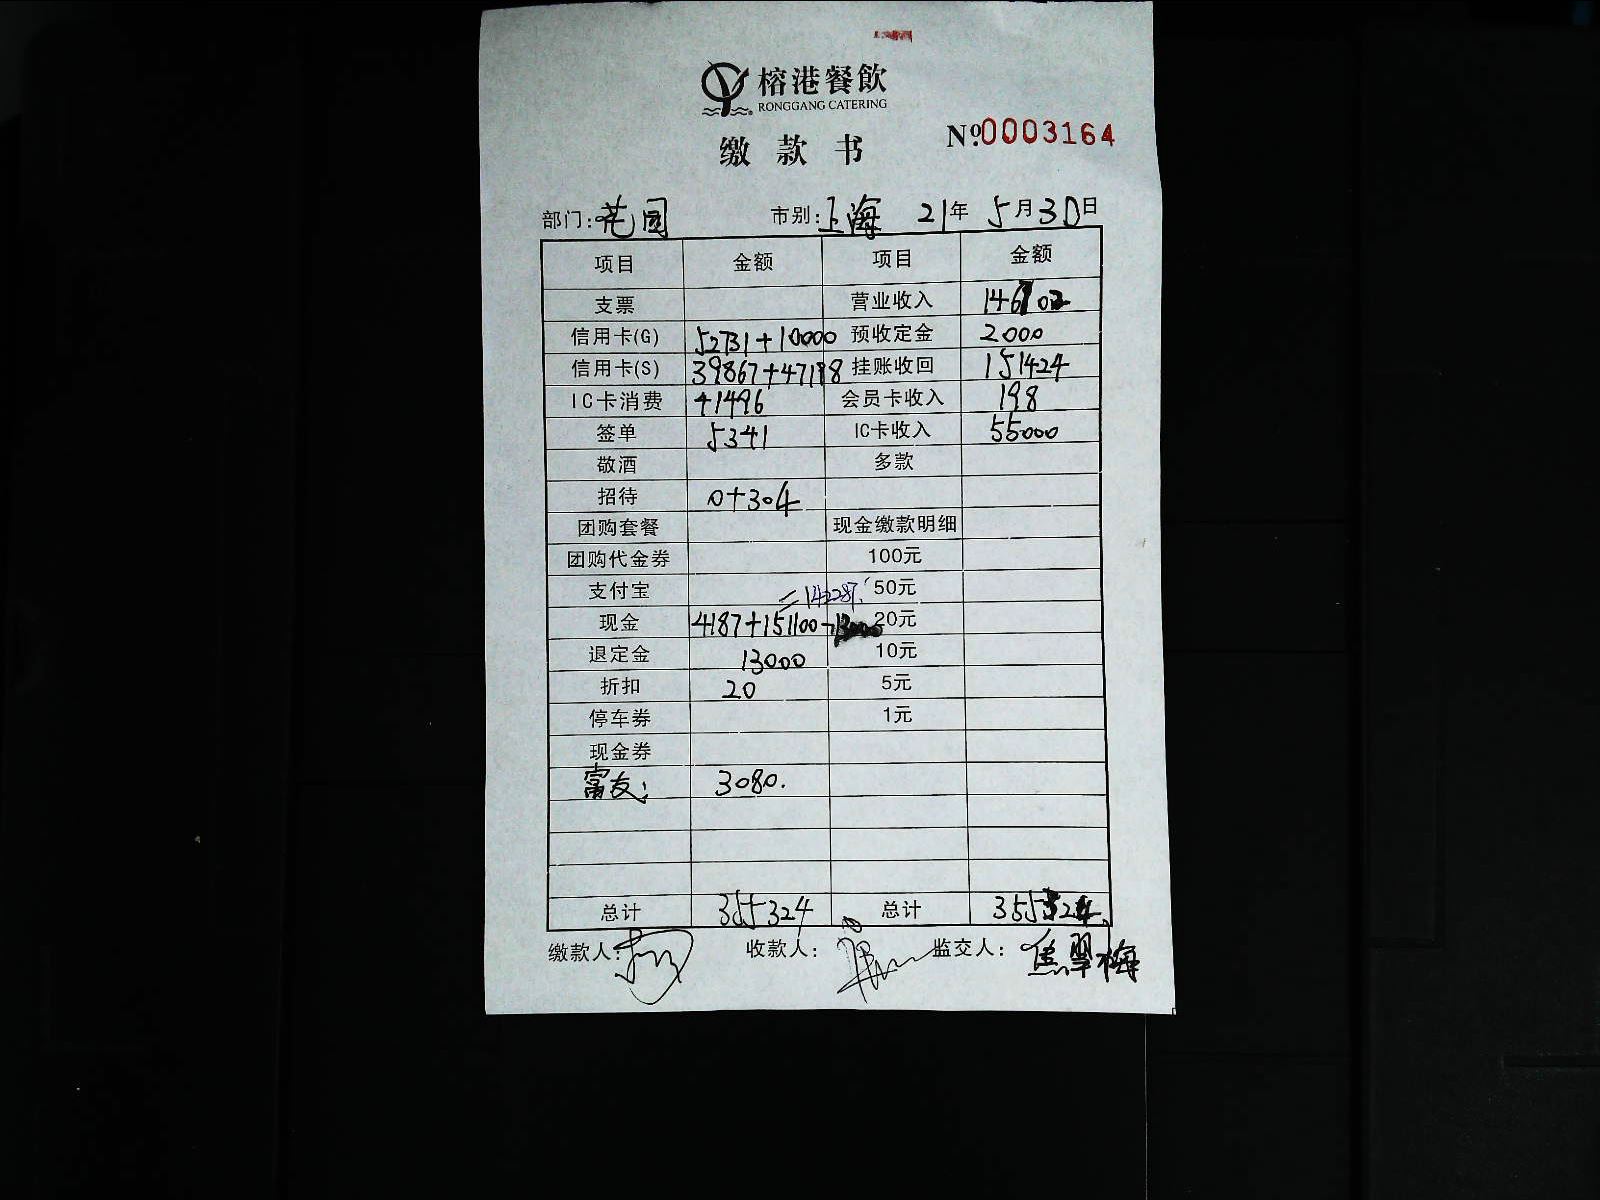 榕港餐飲
RONGGANG CATERING
缴款书
№0003164
部门:花园 市别:上海 21年 5月30日
项目 金额 项目 金额
支票 营业收入 146702
信用卡(G) 52731+10000 预收定金 2000
信用卡(S) 39867+47198 挂账收回 151424
IC卡消费 41496 会员卡收入 198
签单 5341 IC卡收入 55000
敬酒 多款
招待 0+304
团购套餐 现金缴款明细
团购代金券 100元
支付宝 =142287. 50元
现金 4187+151100-13000 20元
退定金 13000 10元
折扣 20 5元
停车券 1元
现金券
富友: 3080.
总计 355324 总计 355324
缴款人: 收款人: 监交人: 焦翠梅